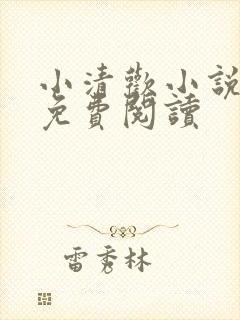 小清歡小說
免費閱讀
雷秀林